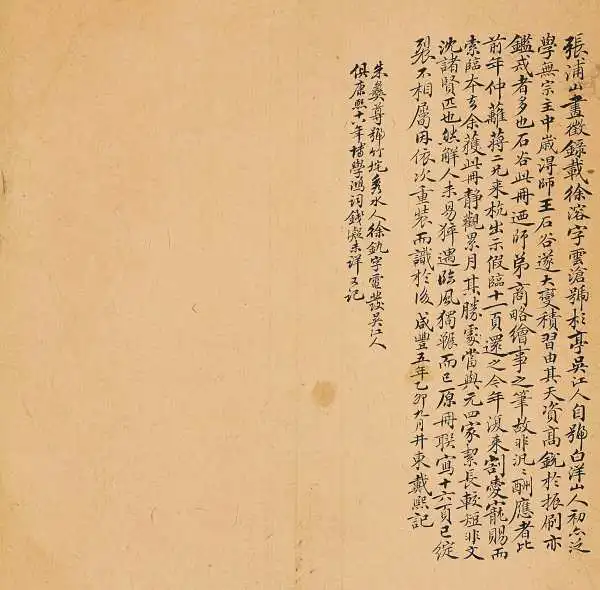 張浦山畫徵錄載徐溶字雲滄號杉亭吳江人自號白洋山人初亦泛
學無宗主中歲得師王石谷遂大變積習由其天資高銳於振刷亦
鑑戒者多也石谷此冊迺師弟商略繪事之筆故非汎〻酬應者比
前年仲蘺蔣二兄来杭出示假臨十一頁還之今年湏来割愛寵賜而
索臨本去余獲此冊靜觀累月其勝處當與元四家絜長較短非文
沈諸賢匹也然解人未易猝遇臨風獨囅而已原冊聯寫十六頁已綻
裂不相屬因依次重裝而識於後咸豐五年乙卯九月井東戴熙記
朱彝尊號竹垞秀水人徐釚字電發吳江人
俱康熙十八年博學鴻詞錢 未詳又記